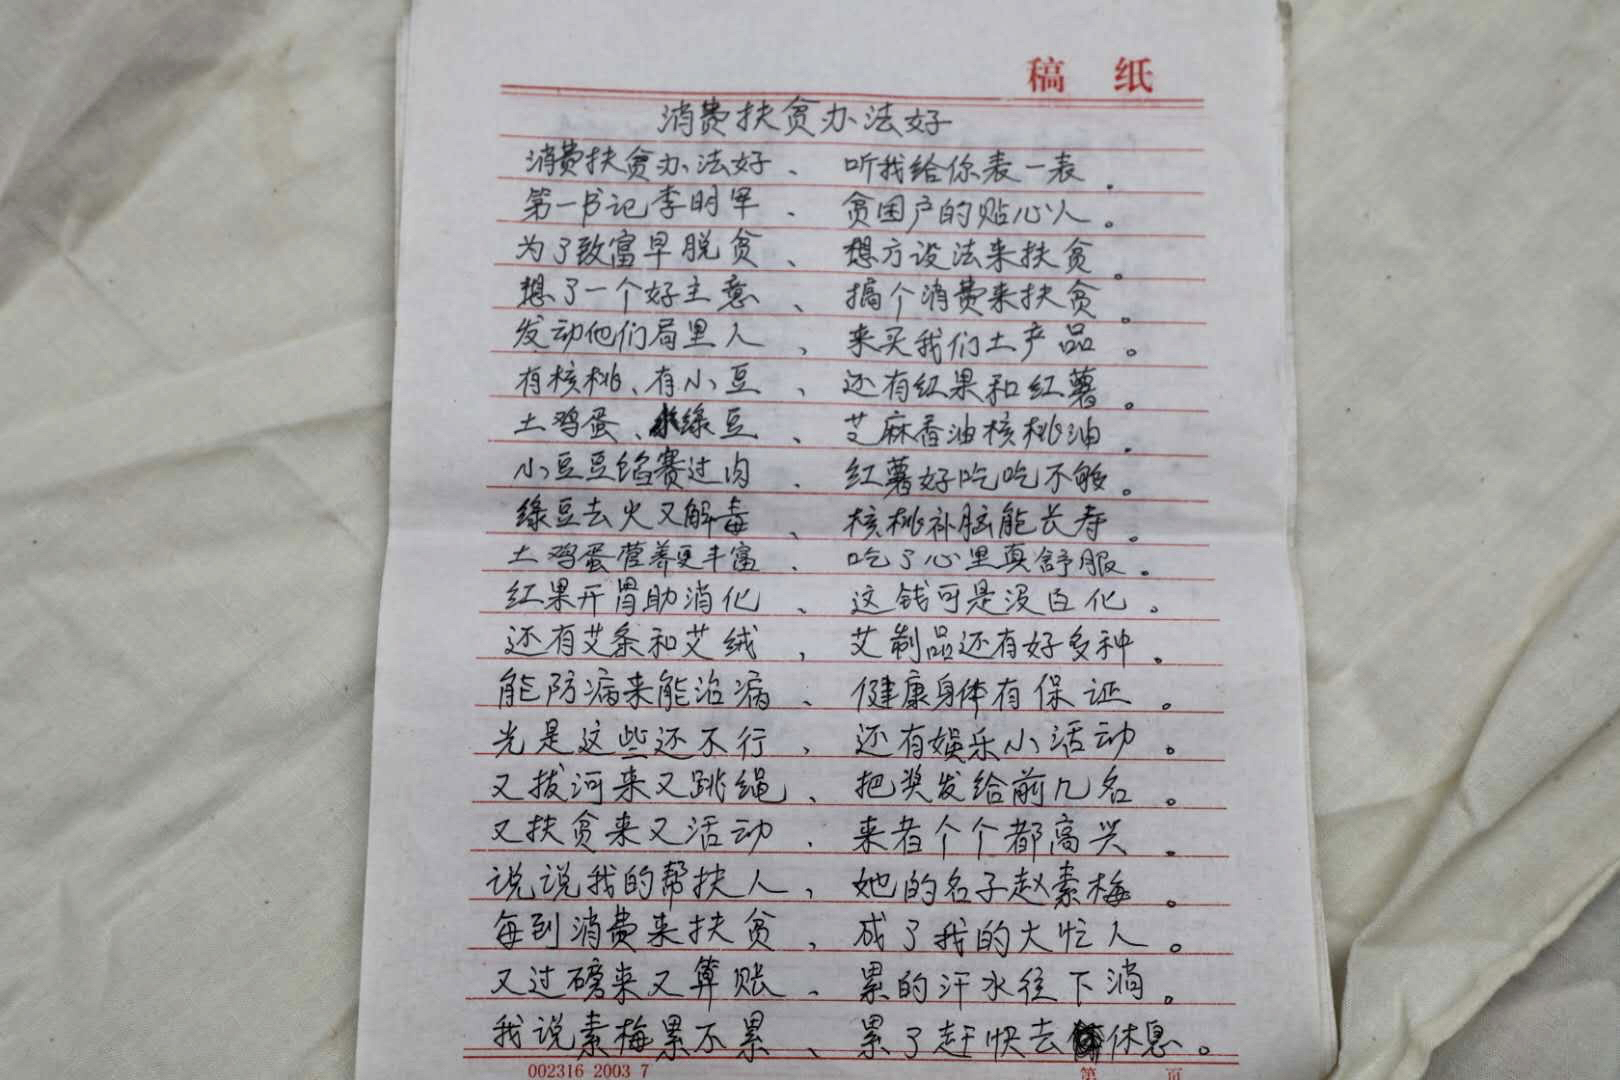 稿 纸
消费扶贫办法好
消费扶贫办法好、听我给你表一表。
第一书记李明军、贫困户的贴心人。
为了致富早脱贫、想方设法来扶贫。
想了一个好主意、搞个消费来扶贫。
发动他们局里人、来买我们土产品。
有核桃、有小豆、还有红果和红薯。
土鸡蛋、绿豆、芝麻香油核桃油。
小豆豆馅赛过肉、红薯好吃吃不够。
绿豆去火又解毒、核桃补脑能长寿。
土鸡蛋营养更丰富、吃了心里真舒服。
红果开胃助消化、这钱可是没白化。
还有艾条和艾绒、艾制品还有好多种。
能防病来能治病、健康身体有保证。
光是这些还不行、还有娱乐小活动。
又拔河来又跳绳、把奖发给前几名。
又扶贫来又活动、来者个个都高兴。
说说我的帮扶人、她的名子赵素梅。
每到消费来扶贫、成了我的大忙人。
又过磅来又算账、累的汗水往下淌。
我说素梅累不累、累了赶快去休息。
002316 2003 7 第 页